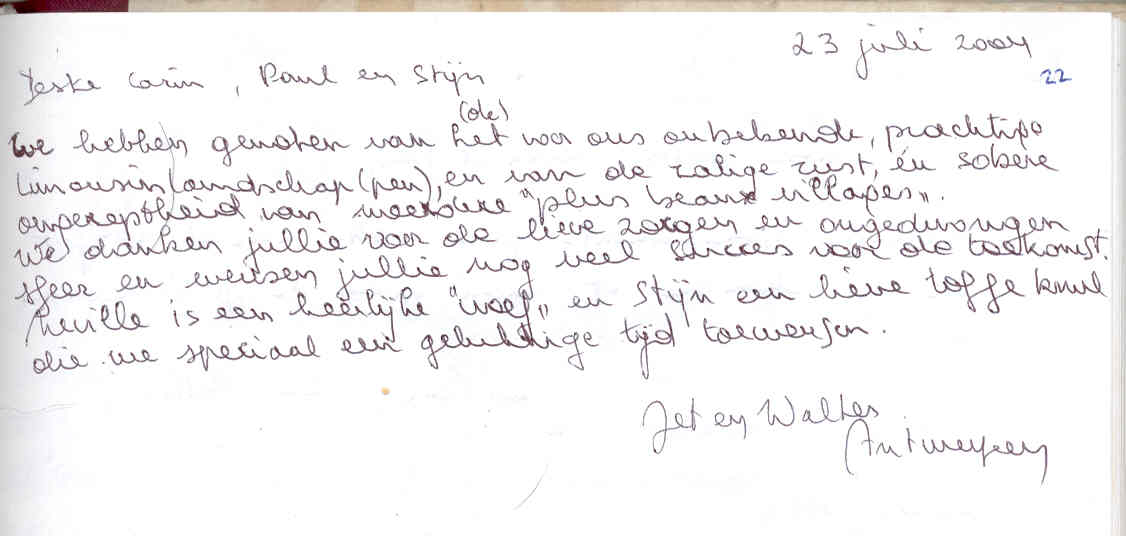 23 juli 2004
22
Jeske Carin, Paul en Stijn
(de)
We hebben genoten van het voor ons onbekende, prachtige
Limousin landschap(pen), en van de zalige rust, en sobere
ongereptheid van meerdere "plus beaux villages".
We danken jullie voor de lieve zorgen en ongedwongen
sfeer en wensen jullie nog veel succes voor de toekomst.
Neville is een heerlijke "woef" en Stijn een lieve toffe knul
die we speciaal een gelukkige tijd toewensen.
Jet en Walter
Antwerpen